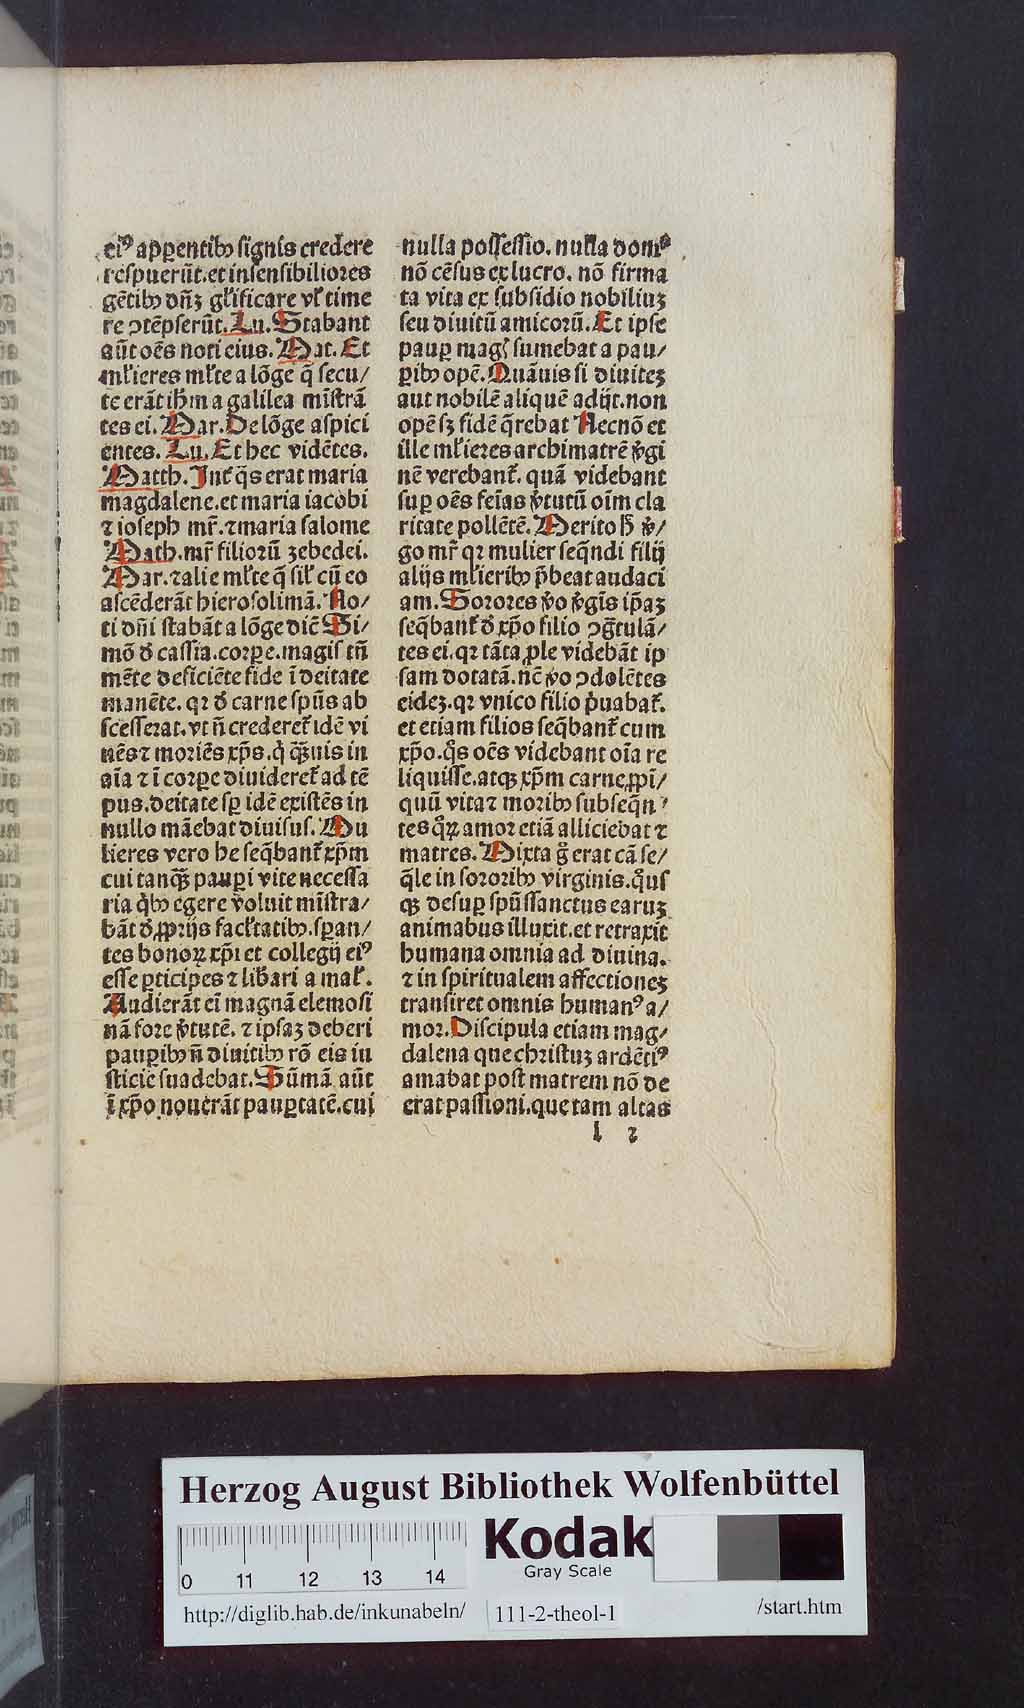 eiꝰ apꝑentibꝫ signis credere
respuerūt. et insensibiliores
gētibꝫ dn̄ꝫ gl̄ificare vl̄ time
re ꝯtēpserūt. Lu. Stabant
aūt oēs noti eius. Mat. Et
ml̄ieres ml̄te a lōge q̄ secu/
te erāt ih̄m a galilea mīstrā
tes ei. Mar. De lōge aspici
entes. Lu. Et hec vidētes.
Matth. Int̄ q̄s erat maria
magdalene. et maria iacobi
⁊ ioseph mr̄. ⁊ maria salome
Math. mr̄ filiorū zebedei.
Mar. ⁊ alie ml̄te q̄ sil̄ cū eo
ascēderāt hierosolimā. No/
ti dn̄i stabāt a lōge dic̄ Si/
mō đ cassia. corꝑe. magis tn̄
mēte deficiēte fide ī deitate
manēte. qꝛ đ carne spūs ab
scesserat. vt n̄ crederet̄ idē vi
uēs ⁊ moriēs xp̄s. q̇ qꝫ̄uis in
aīa ⁊ ī corꝑe diuideret̄ ad tē
pus. deitate sꝑ idē existēs in
nullo māebat diuisus. Mu
lieres vero he seq̄bant̄ xp̄m
cui tanqꝫ̄ pauꝑi vite necessa
ria q̇bꝫ egere voluit mīstra/
bāt đ ꝓprijs facl̄tatibꝫ. sꝑan/
tes bonoꝝ xp̄i et collegij eiꝰ
esse ꝑticipes ⁊ lib̄ari a mal̄.
Audierāt eī magnā elemosi
nā fore v̄tutē. ⁊ ipsaꝫ deberi
pauꝑibꝫ n̄ diuitibꝫ rō eis iu
sticie suadebat. Sūmā aūt
ī xp̄o nouerāt pauꝑtatē. cui
nulla possessio. nulla domꝰ
nō cēsus ex lucro. nō firma
ta vita ex subsidio nobiliuꝫ
seu diuitū amicorū. Et ipse
pauꝑ mag̕ sumebat a pau/
ꝑibꝫ opē. Quāuis si diuiteꝫ
aut nobilē aliquē adijt. non
opē sꝫ fidē q̄rebat Necnō et
ille ml̄ieres archimatrē v̄gi
nē verebant̄. quā videbant
suꝑ oēs feīas v̄tutū oīm cla
ritate pollētē. Merito h̄ v̄/
go mr̄ qꝛ mulier seq̄ndi filij
alijs ml̄ieribꝫ p̄beat audaci
am. Sorores v̄o v̄gīs ip̄aꝫ
seq̄bant̄ đ xp̄o filio ꝯg̅tulā/
tes ei. qꝛ tāta ꝓle videbāt ip
sam dotatā. nē v̄o ꝯdolētes
eideꝫ. qꝛ vnico filio p̄uabat̄.
et etiam filios seq̄bant̄ cum
xp̄o. q̊s oēs videbant oīa re
liquisse. atqꝫ xp̄m carne ꝓpī/
quū vita ⁊ moribꝫ subseq̄n
tes q̊ꝝ amor etiā alliciebat ⁊
matres. Mixta g̊ erat cā se/
q̄le in sororibꝫ virginis. q̊us
qꝫ desuꝑ spūssanctus earuꝫ
animabus illuxit. et retraxit
humana omnia ad diuina.
⁊ in spiritualem affectioneꝫ
transiret omnis humanꝰ a/
mor. Discipula etiam mag/
dalena que christuꝫ ardētiꝰ
amabat post matrem nō de
erat passioni. que tam altas
l 2
Herzog August Bibliothek Wolfenbüttel
Kodak
Gray Scale
0 11 12 13 14
http://diglib.hab.de/inkunabeln/ 111-2-theol-1 /start.htm